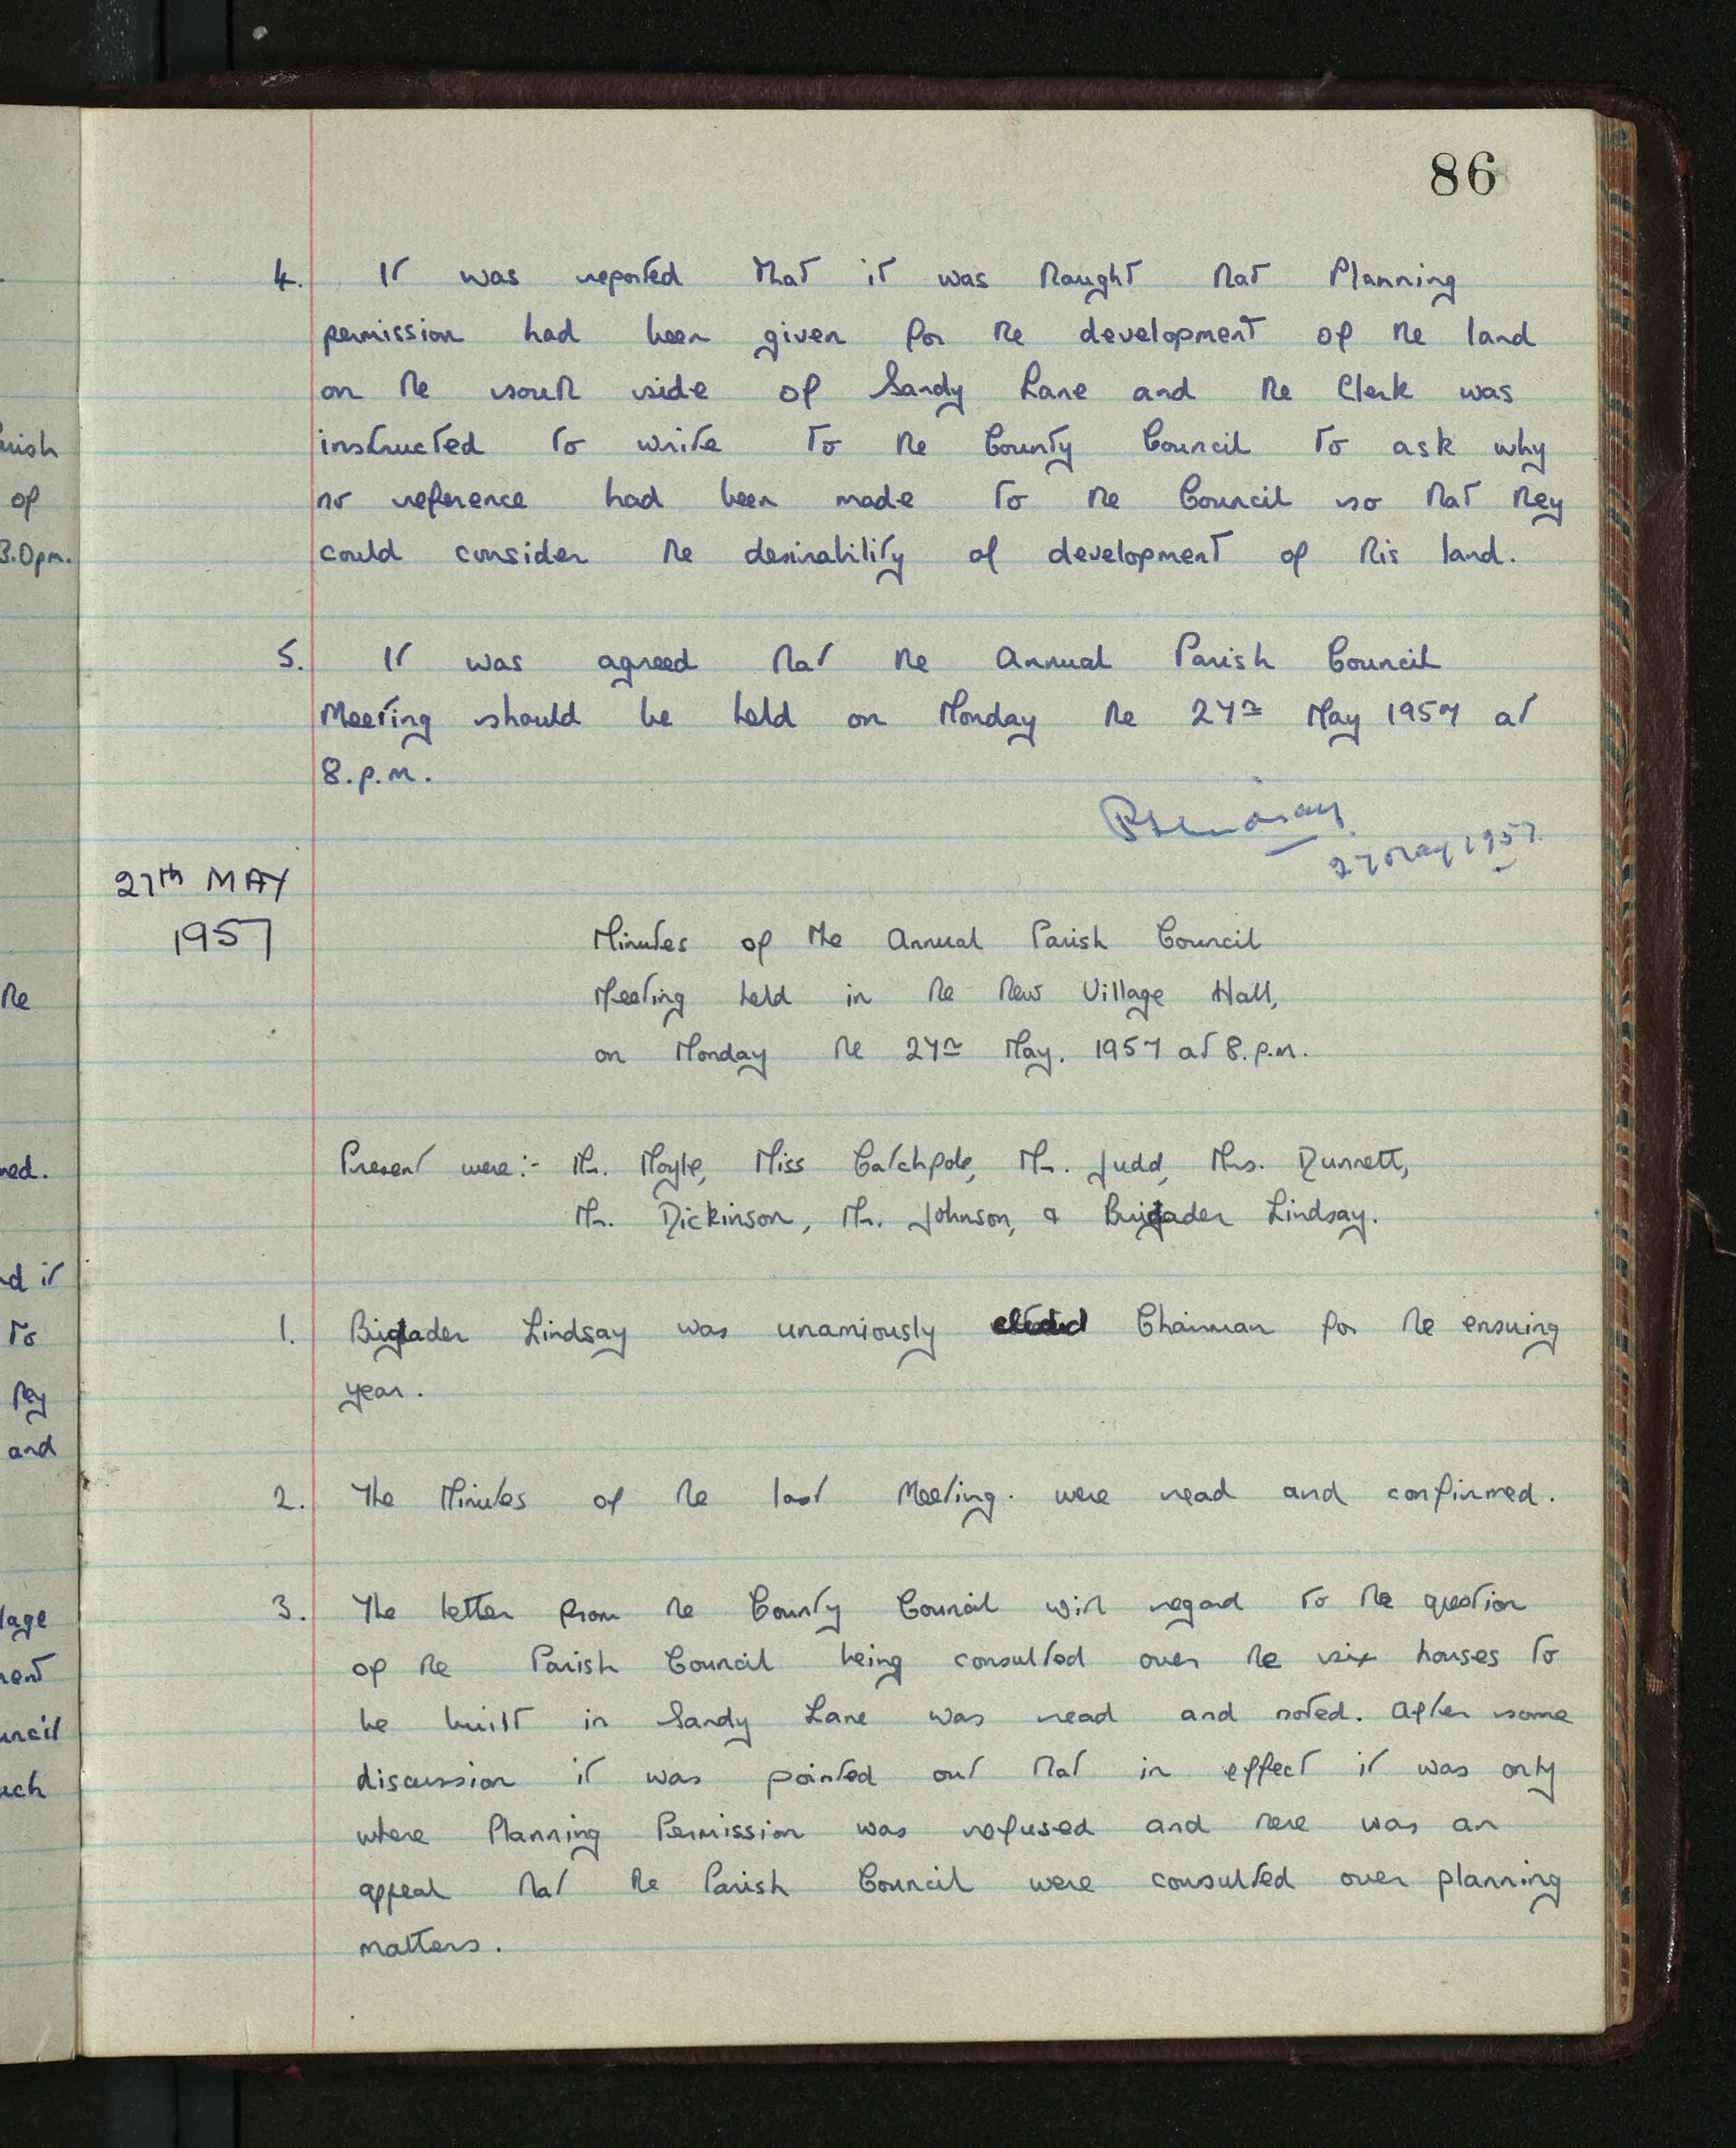 86
4. It was reported that it was thought that Planning
permission had been given for the development of the land
on the south side of Sandy Lane and the Clerk was
instructed to write to the County Council to ask why
no reference had been made to the Council so that they
could consider the desirability of development of this land.
5. It was agreed that the Annual Parish Council
Meeting should be held on Monday the 27th May 1957 at
8.p.m.
27 May 1957.
27th MAY
1957
Minutes of the Annual Parish Council
Meeting held in the New Village Hall,
on Monday the 27th May. 1957 at 8.p.m.
Present were:- Mr. Moyle, Miss Catchpole, Mr. Judd, Mrs. Dunnett,
Mr. Dickinson, Mr. Johnson, & Brigader Lindsay.
1. Brigader Lindsay was unamiously elected Chairman for the ensuing
year.
2. The Minutes of the last Meeting. were read and confirmed.
3. The letter from the County Council with regard to the question
of the Parish Council being consulted over the six houses to
be built in Sandy Lane was read and noted. After some
discussion it was pointed out that in effect it was only
where Planning Permission was refused and there was an
appeal that the Parish Council were consulted over planning
matters.
rish
of
3.0pm.
the
ned.
nd it
to
they
and
lage
ment
uncil
uch